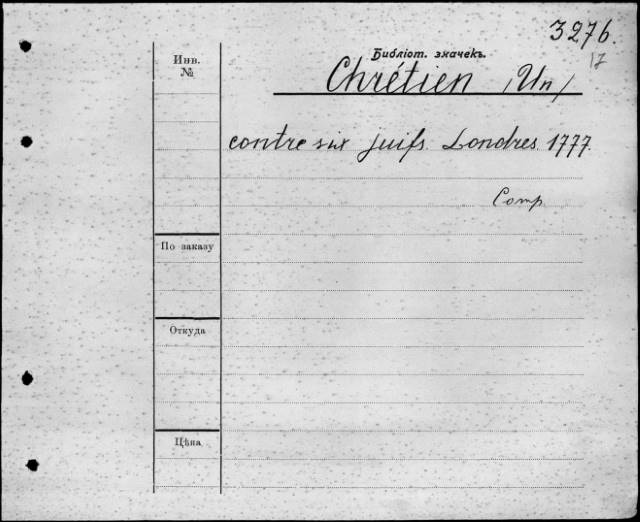 3276
17
Инв.
№
Библіот. значекъ.
Chrétien (Un)
contre six juifs. Londres. 1777.
Comp
По заказу
Откуда
Цѣна